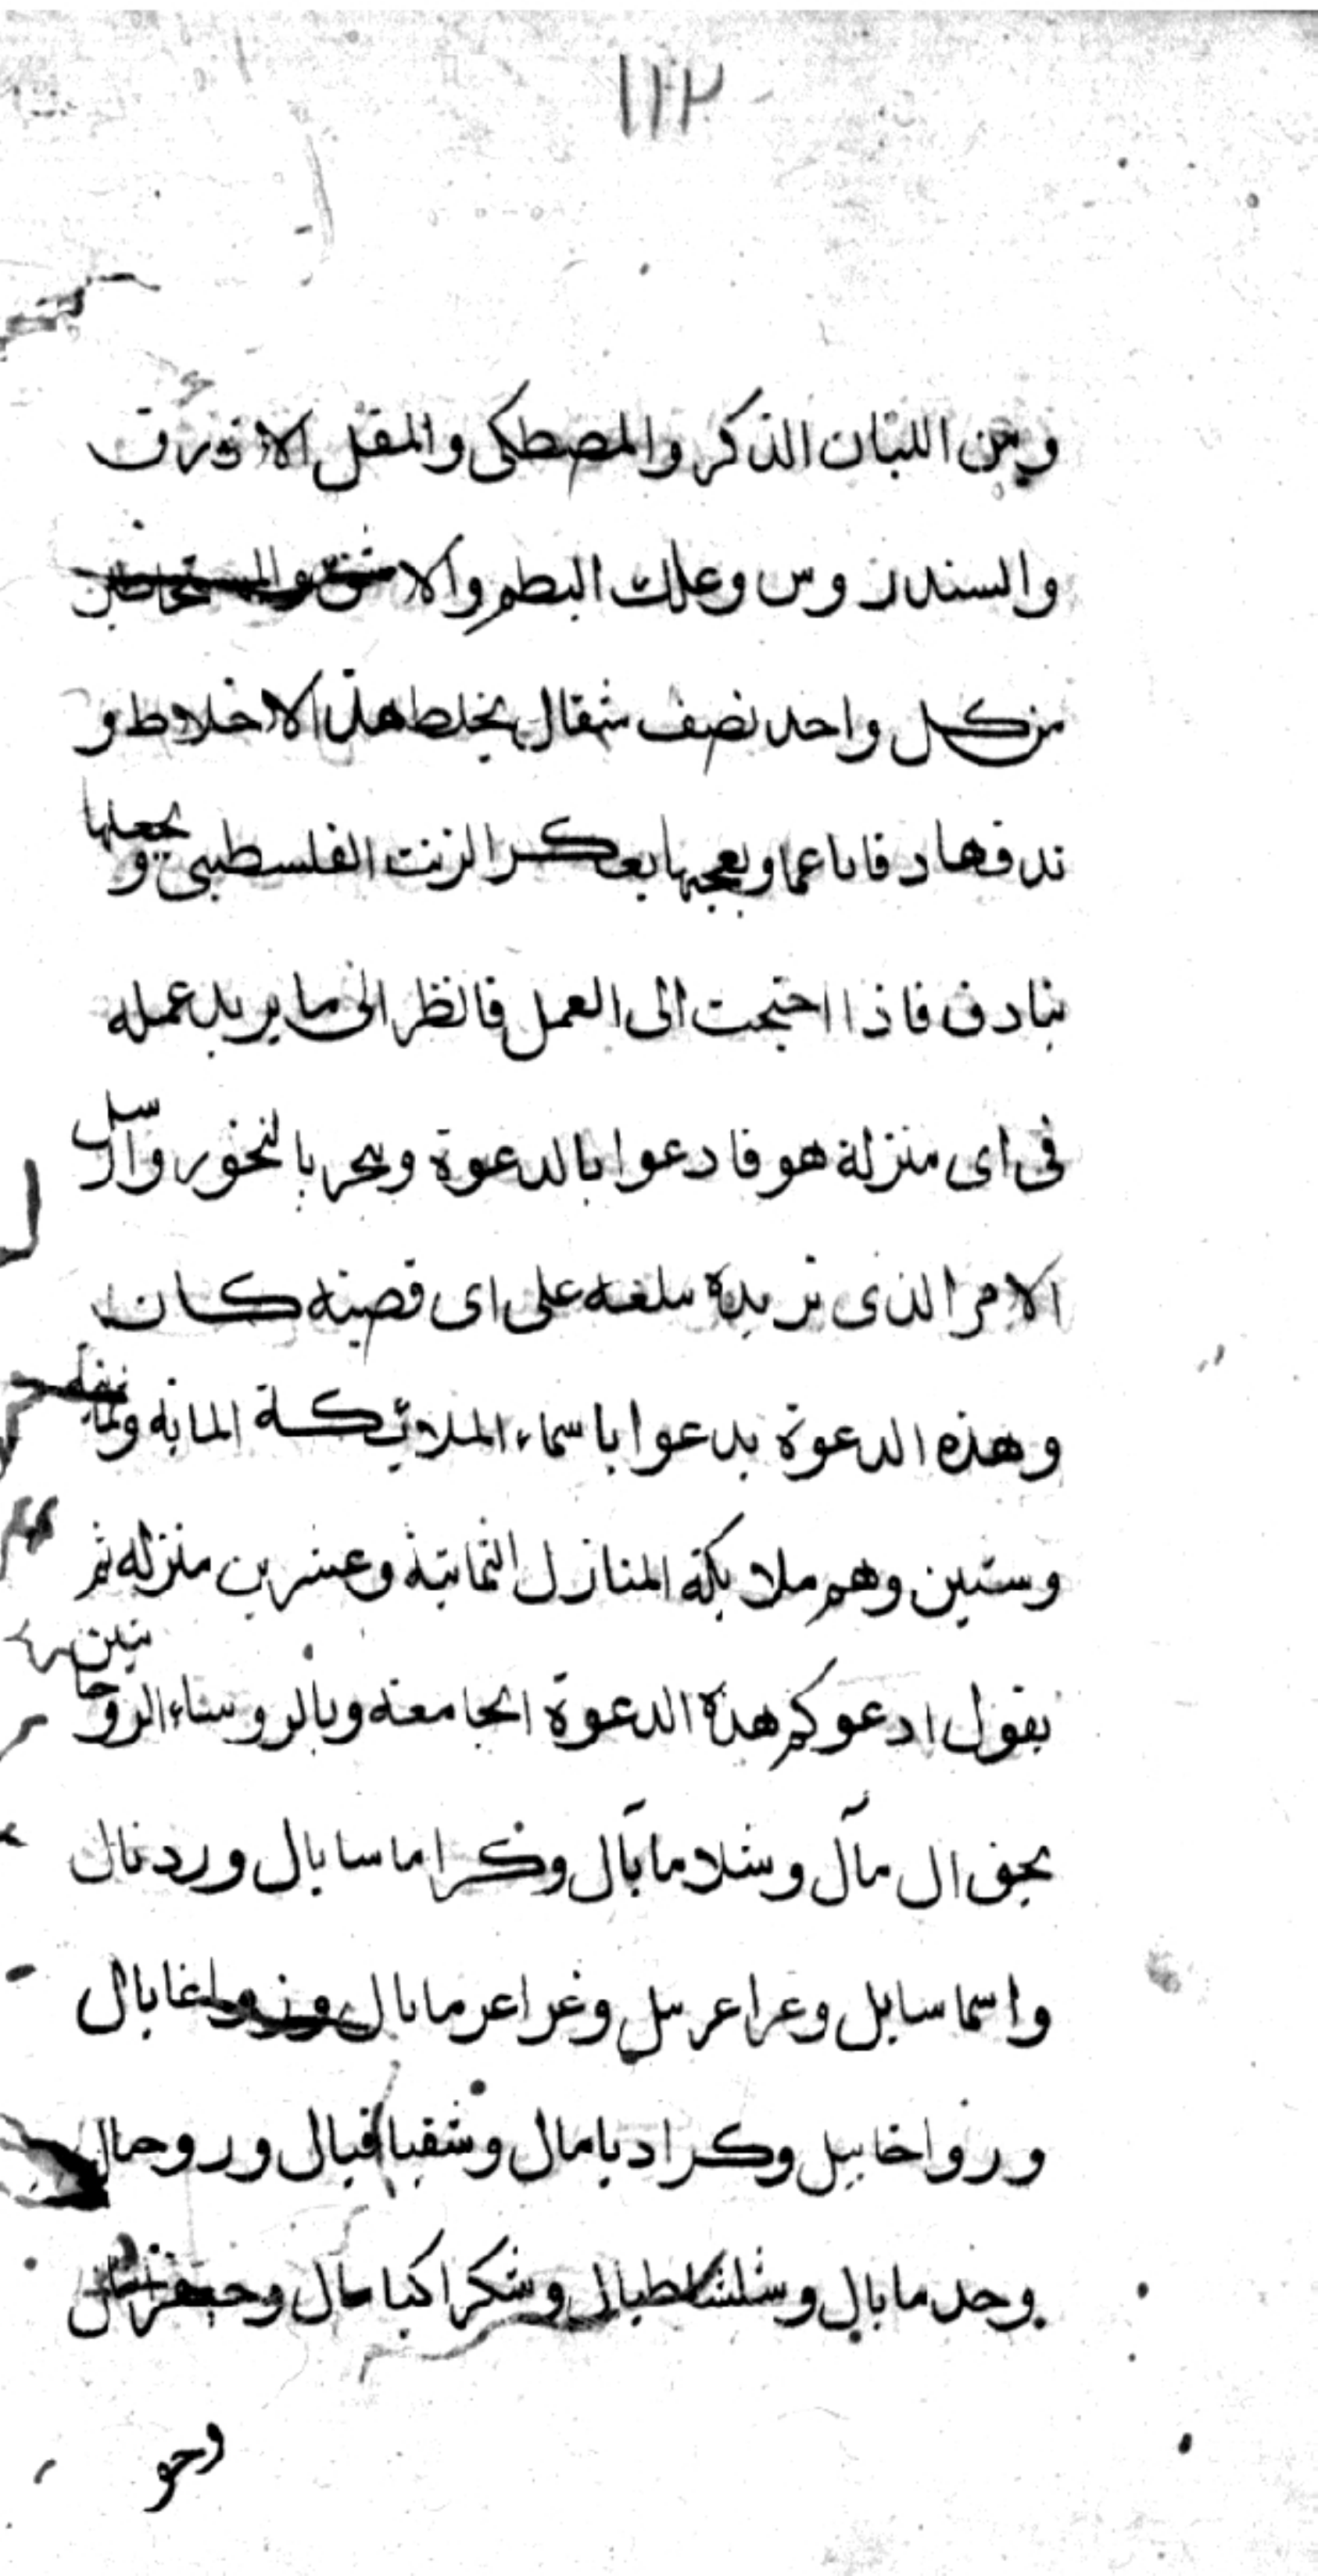 ١١٢
ومن اللبان الذكر والمصطكى والمقل الازرق
والسندروس وعلك البطم والاشق
من كل واحد نصف مثقال يخلط هذه الاخلاط و
ندقها دقا ناعما ويعجنها بعكر الزيت الفلسطيني ويجعلها
بنادق فاذا احتجت الى العمل فانظر الى ما يريد عمله
في اى منزلة هو فادعوا بالدعوة وبخر بالبخور واسل
الامر الذى تريده تبلغه على اى قضية كان
وهذه الدعوة يدعوا باسماء الملائكة المايه وثمانيه
وستين وهم ملايكة المنازل الثمانية وعشرين منزله ثم
يقول ادعوكم هذه الدعوة الجامعة وبالروساء الروحانيين
بحق ال مآل وشلامايآل وكراماسايال وردنال
واسماسايل وعراعرىيل وغراعرمايال اغايال
ورواخابيل وكراديامال وشقباقيال وروحال
وحدمايال وشلشاطيال وشكراكيامال
وحو